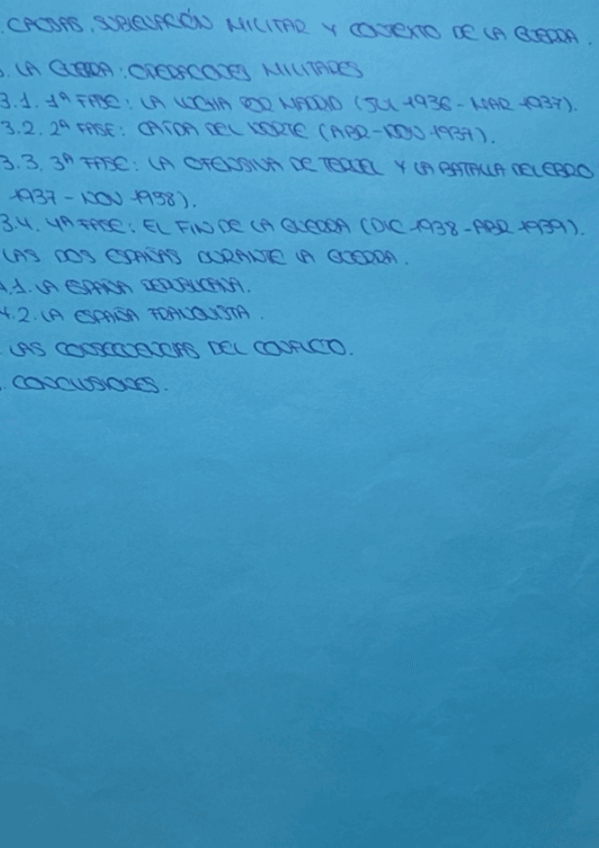 . CAUSAS, SUBLEVACIÓN MILITAR Y CONTEXTO DE LA GUERRA.
. LA GUERRA: OPERACIONES MILITARES
3.1. 1ª FASE: LA LUCHA POR MADRID (JUL 1936 - MAR 1937).
3.2. 2ª FASE: CAÍDA DEL NORTE (ABR - NOV 1937).
3.3. 3ª FASE: LA OFENSIVA DE TERUEL Y LA BATALLA DEL EBRO
1937 - NOV 1938).
3.4. 4ª FASE: EL FIN DE LA GUERRA (DIC 1938 - ABR 1939).
LAS DOS ESPAÑAS DURANTE LA GUERRA.
4.1. LA ESPAÑA REPUBLICANA.
4.2. LA ESPAÑA FRANQUISTA.
LAS CONSECUENCIAS DEL CONFLICTO.
. CONCLUSIONES.